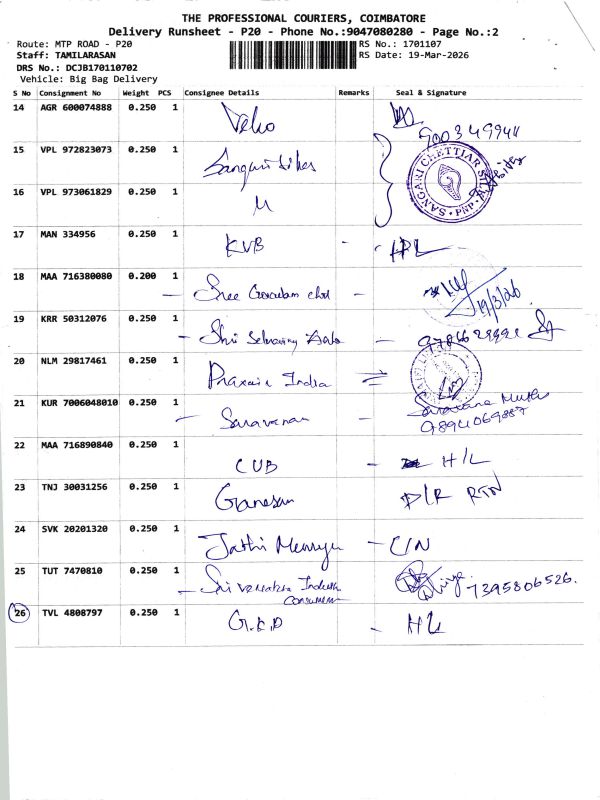 THE PROFESSIONAL COURIERS, COIMBATORE
Delivery Runsheet - P20 - Phone No.:9047080280 - Page No.:2
Route: MTP ROAD - P20 RS No.: 1701107
Staff: TAMILARASAN RS Date: 19-Mar-2026
DRS No.: DCJB170110702
Vehicle: Big Bag Delivery
S No Consignment No Weight PCS Consignee Details Remarks Seal & Signature
14 AGR 600074888 0.250 1
15 VPL 972823073 0.250 1
SANGARI CHETTIAR SILK PNP
16 VPL 973061829 0.250 1 "
17 MAN 334956 0.250 1 KVB -
18 MAA 716380080 0.200 1 - Sree -
19/3/26
19 KRR 50312076 0.250 1 - Shri -
20 NLM 29817461 0.250 1 Praxair India
21 KUR 7006048010 0.250 1 - Saravanan - 9894069887
22 MAA 716890840 0.250 1 CUB - H/L
23 TNJ 30031256 0.250 1 Ganesan D/R RTN
24 SVK 20201320 0.250 1 - C/N
25 TUT 7470810 0.250 1 - Sri 7395806526.
26 TVL 4808797 0.250 1 G.K.D - HL